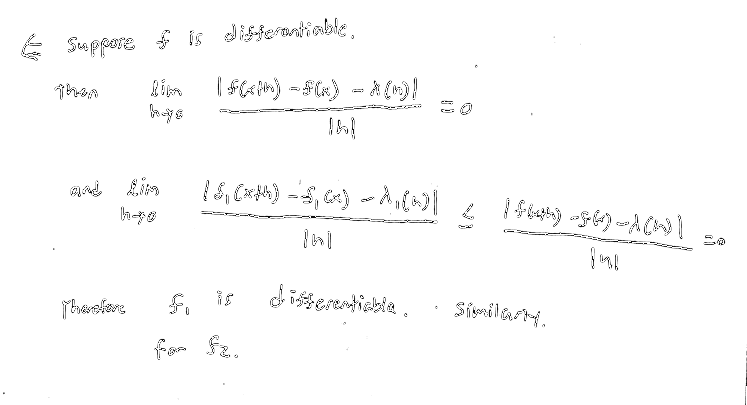 ⇐ Suppose f is differentiable.
Then lim h→0 |f(x+h) - f(x) - λ(h)| / |h| = 0
and lim h→0 |f₁(x+h) - f₁(x) - λ₁(h)| / |h| ≤ |f(x+h) - f(x) - λ(h)| / |h| = 0
Therefore f₁ is differentiable. Similarly.
for f₂.